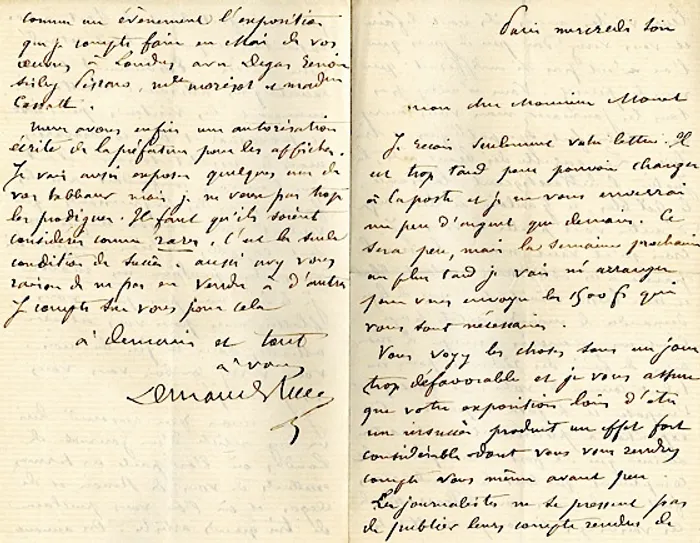 Paris mercredi soir
mon cher Monsieur Monet
Je reçois seulement votre lettre. Il
est trop tard pour pouvoir changer
à la poste et je ne vous enverrai
un peu d'argent que demain. Ce
sera peu, mais la semaine prochaine
au plus tard je vais m'arranger
pour vous envoyer les 1500 fs qui
vous sont nécessaires.
Vous voyez les choses sous un jour
trop défavorable et je vous assure
que votre exposition loin d'être
un insuccès produit un effet fort
considérable dont vous vous rendrez
compte vous même avant peu
Les journalistes ne se pressent pas
de publier leurs comptes rendus de
comme un évènement l'exposition
que je compte faire en Mai de vos
œuvres à Londres, avec Degas Renoir
Sisley Pissaro, Morisot et
Cassatt.
Nous avons enfin une autorisation
écrite de la préfecture pour les affiches.
Je vais aussi exposer quelques uns de
vos tableaux mais je ne veux pas trop
les prodiguer. Il faut qu'ils soient
considérés comme rares. C'est la seule
condition de succès aussi avez vous
raison de ne pas en vendre à d'autres
Je compte sur vous pour cela
à demain et tout
à vous
Durand Ruel